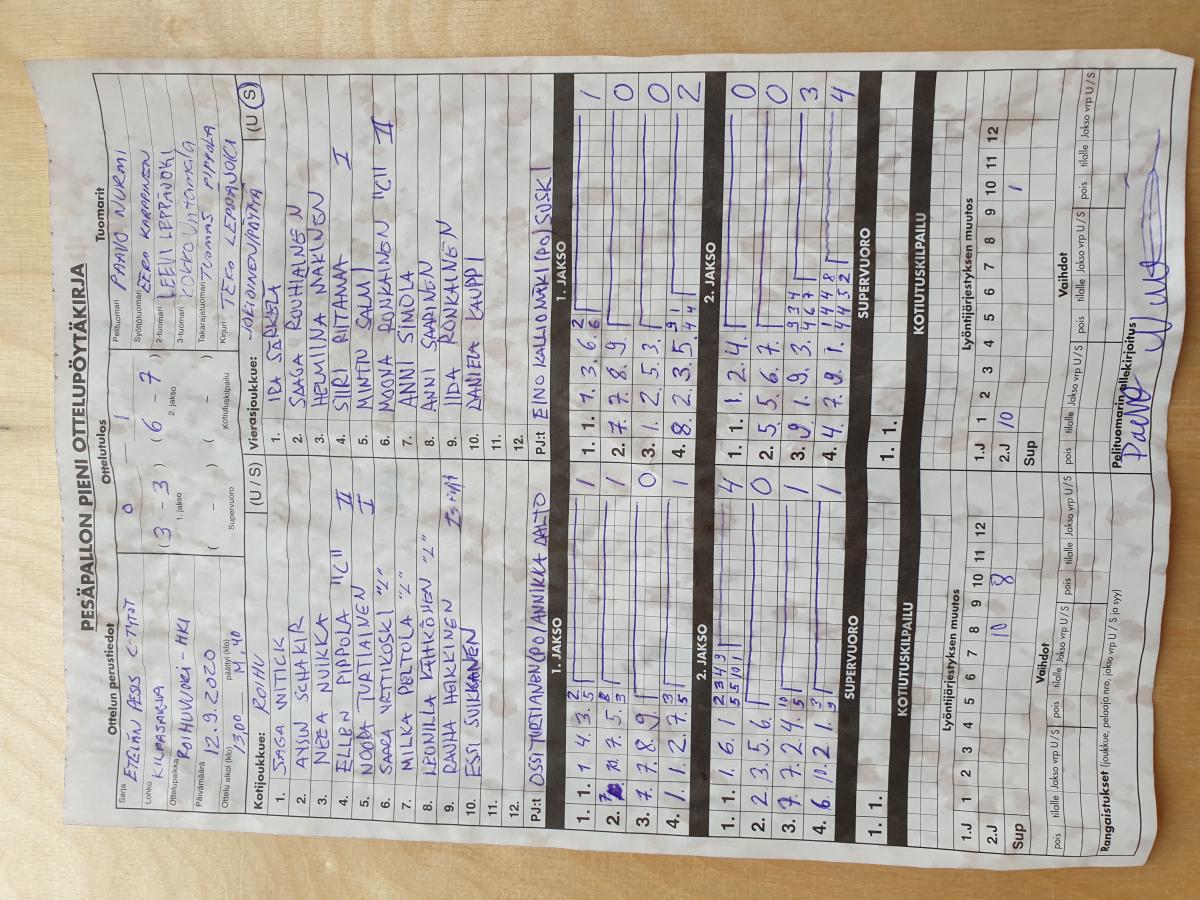 PESÄPALLON PIENI OTTELUPÖYTÄKIRJA
Ottelun perustiedot
Sarja ETELÄN PESIS C-TYTÖT
Lohko KILPASARJA
Ottelupaikka ROIHUVUORI - HKI
Päivämäärä 12.9.2020
Ottelu alkoi (klo) 13.00 päättyi (klo) 14.40
Ottelutulos
0 - 1
(3 - 3) (6 - 7)
1. jakso 2. jakso
( - ) ( - )
Supervuoro Kotiutuskilpailu
Tuomarit
Pelituomari PAAVO NURMI
Syöttötuomari EERO KARPPINEN
2-tuomari LEEVI LEPPÄJOKI
3-tuomari
Takarajatuomari TUOMAS PIPPOLA
Kirjuri
Kotijoukkue: ROIHU (U / S)
1.
2.
3. NEEA
4. ELLEN PIPPOLA "C" II
5. NOORA TURTIAINEN I
6. SAARA VETTKOSKI "L"
7. MILKA PELTOLA "L"
8. LEONILLA "L"
9. RAUHA HEIKKINEN
10. ESSI SUIKKANEN
11.
12.
PJ:t
Vierasjoukkue: (U / S)
1. IDA
2. SAGA ROUHIAINEN
3. HELMIINA MÄKINEN
4. SIIRI RIITAMAA I
5. MINTTU SALMI
6. MOONA RONKAINEN "C" II
7. ANNI SIMOLA
8. ANNI SAARINEN
9. IIDA RONKAINEN
10. DANIELA KAUPPI
11.
12.
PJ:t EINO KALLIOMÄKI (PO)
1. JAKSO
1. 1. 1. 4. 3. 5 2 1
2. 7. 5. 3 8 1
3. 7. 7. 8. 9. 0
4. 1. 1. 2. 7. 5 3 1
1. JAKSO
1. 1. 1. 3. 6. 6 2 1
2. 7. 7. 8. 9. 0
3. 1. 2. 5. 3. 0
4. 8. 2. 3. 5. 4 4 9 1 2
2. JAKSO
1. 1. 1. 6. 1 4
2. 2. 3. 5. 6. 0
3. 7. 7. 2. 4. 5 10 1
4. 6. 10. 2. 1. 1
2. JAKSO
1. 1. 1. 2. 4. 0
2. 5. 5. 6. 7. 0
3. 9. 1. 9. 3. 4 6 7 9 3 4 3
4. 4. 7. 9. 1. 4 4 5 2 1 4 4 8 4
SUPERVUORO
1. 1.
SUPERVUORO
1. 1.
KOTIUTUSKILPAILU
KOTIUTUSKILPAILU
Lyöntijärjestyksen muutos
1.J 1 2 3 4 5 6 7 8 9 10 11 12
2.J 10 8
Sup
Lyöntijärjestyksen muutos
1.J 1 2 3 4 5 6 7 8 9 10 11 12
2.J 10 1
Sup
Vaihdot
pois tilalle Jakso vrp U / S pois tilalle Jakso vrp U / S pois tilalle Jakso vrp U / S
Vaihdot
pois tilalle Jakso vrp U / S pois tilalle Jakso vrp U / S pois tilalle Jakso vrp U / S
Rangaistukset (joukkue, pelaaja nro, jakso vrp U / S ja syy)
Pelituomarin allekirjoitus